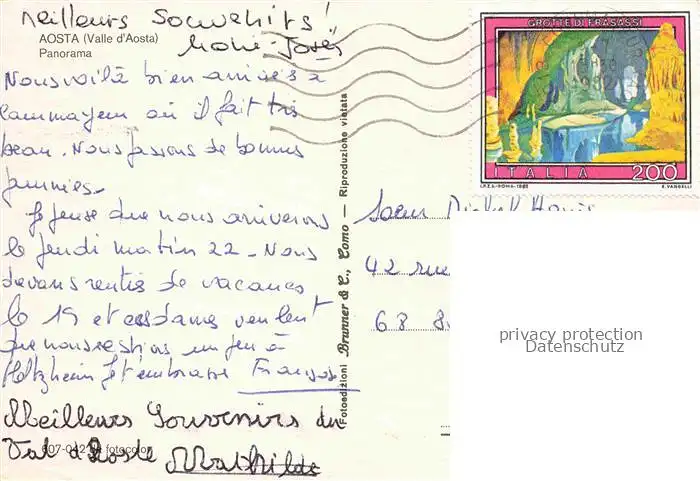 Meilleurs Souvenirs!
Marie-José
AOSTA (Valle d'Aosta)
Panorama
Nous voilà bien arrivés à
Courmayeur où il fait très
beau. Nous passons de bonnes
journées.
Je pense que nous arriverons
le jeudi matin 22 - Nous
devons rentrer de vacances
le 19 et ces dames veulent
que nous restions un peu à
Holtzheim Je t'embrasse François
Meilleurs Souvenirs du
Val d'Aoste Mathilde
607-042 fotocolor
Fotoedizioni Brunner & C., Como — Riproduzione vietata
GROTTE DI FRASASSI
ITALIA 200
I.P.Z.S.-ROMA-1982 E. VANGELLI
Soeur
42 rue
68
privacy protection
Datenschutz